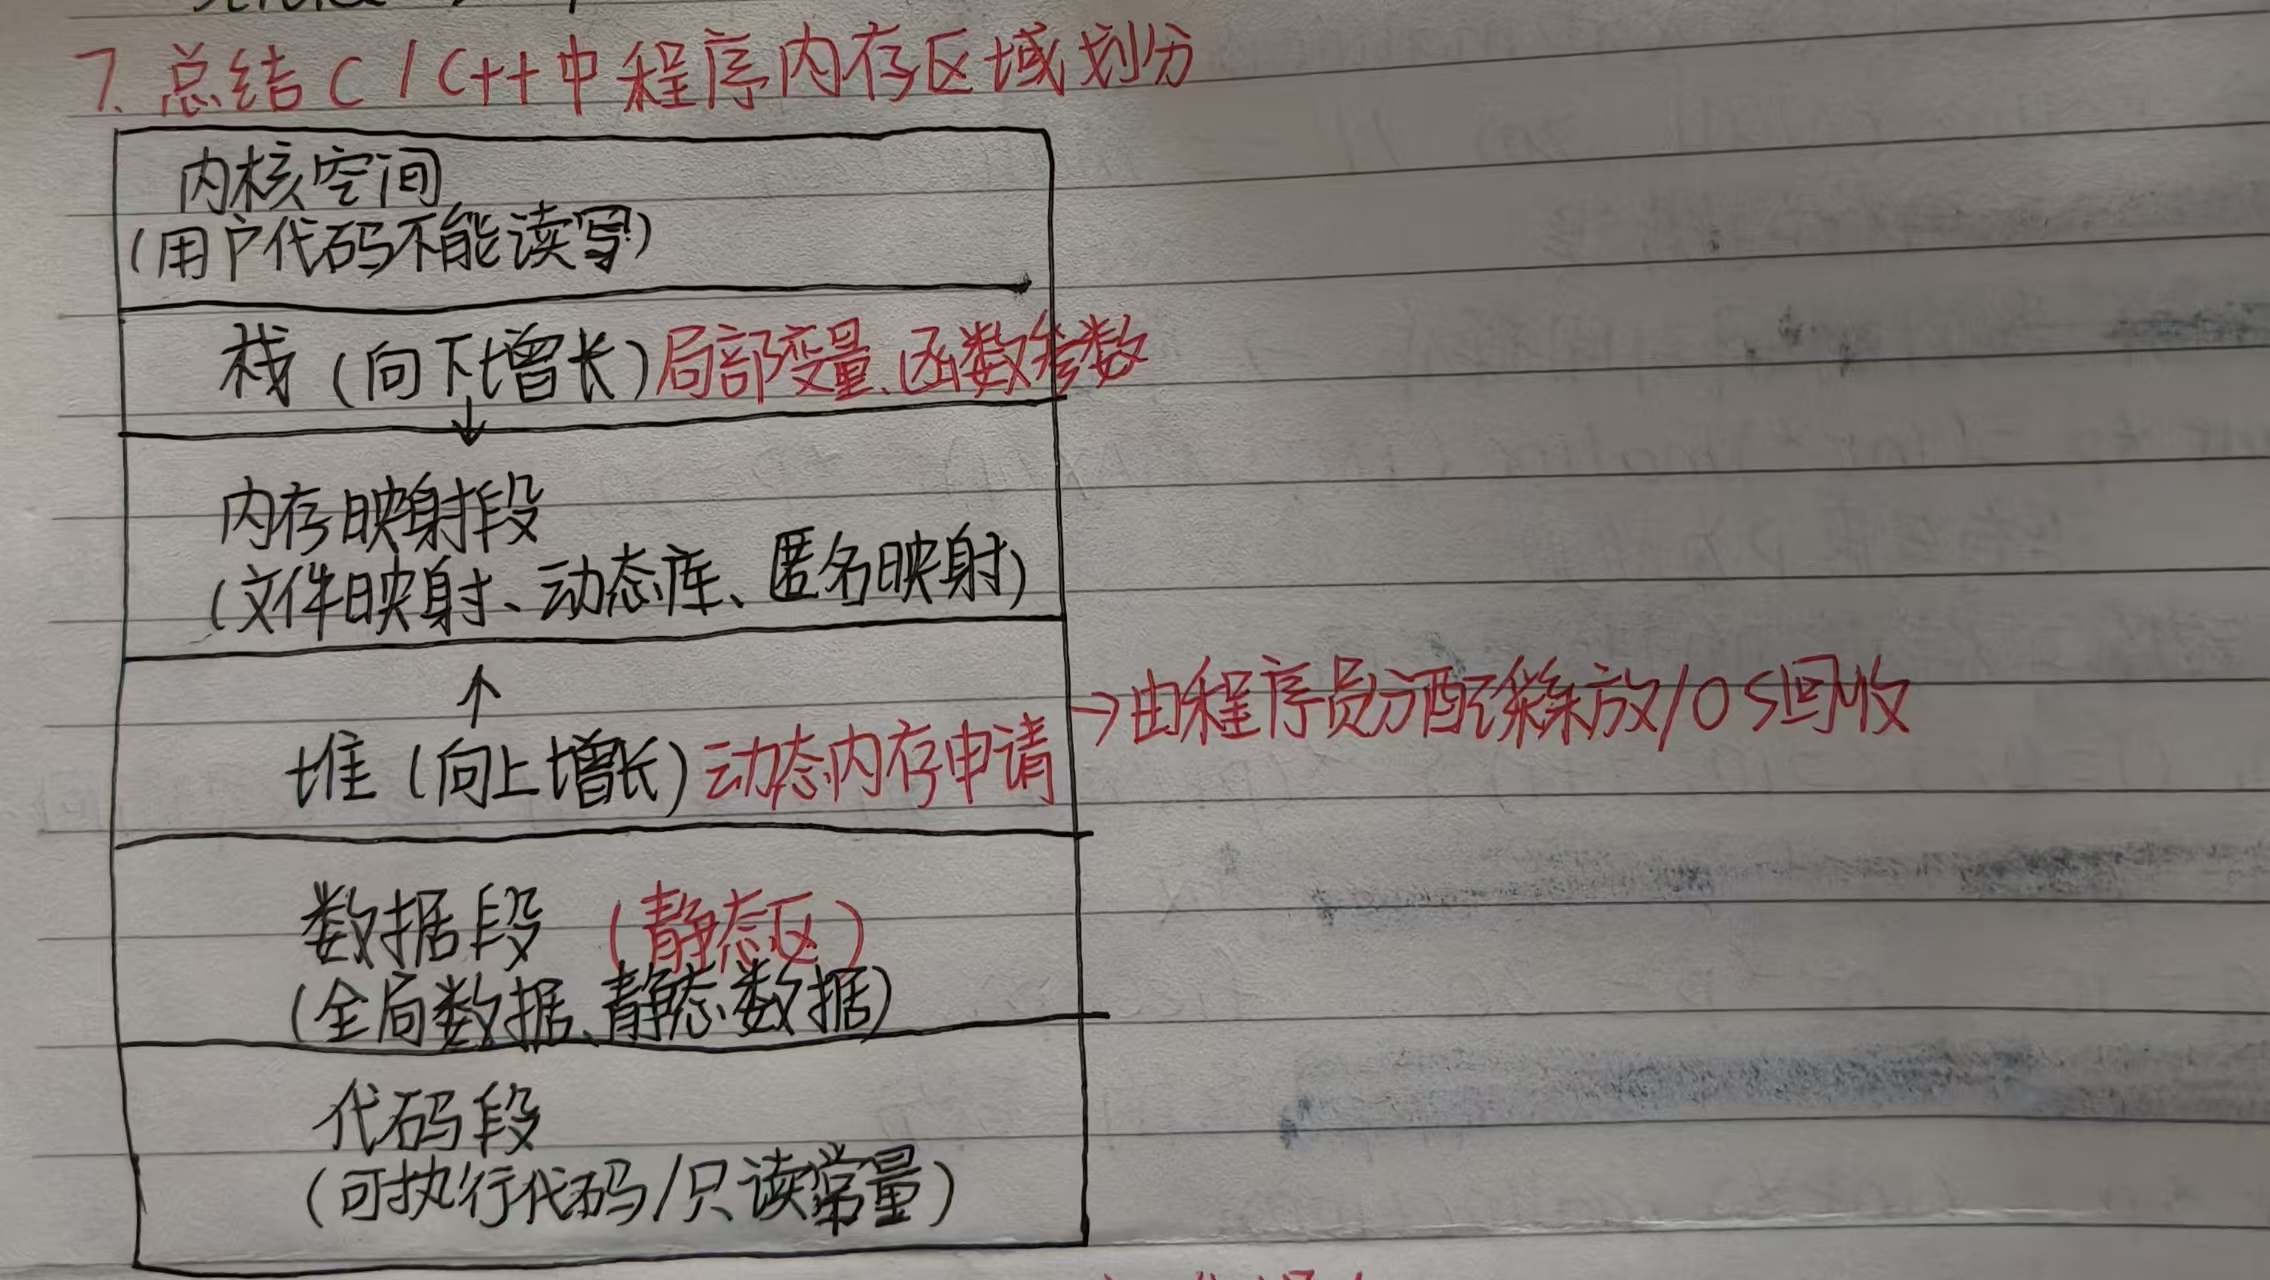 7. 总结C/C++中程序内存区域划分
内核空间
(用户代码不能读写)
栈(向下增长)局部变量、函数参数
↓
内存映射段
(文件映射、动态库、匿名映射)
↑
堆(向上增长)动态内存申请
→由程序员分配释放/OS回收
数据段(静态区)
(全局数据、静态数据)
代码段
(可执行代码/只读常量)